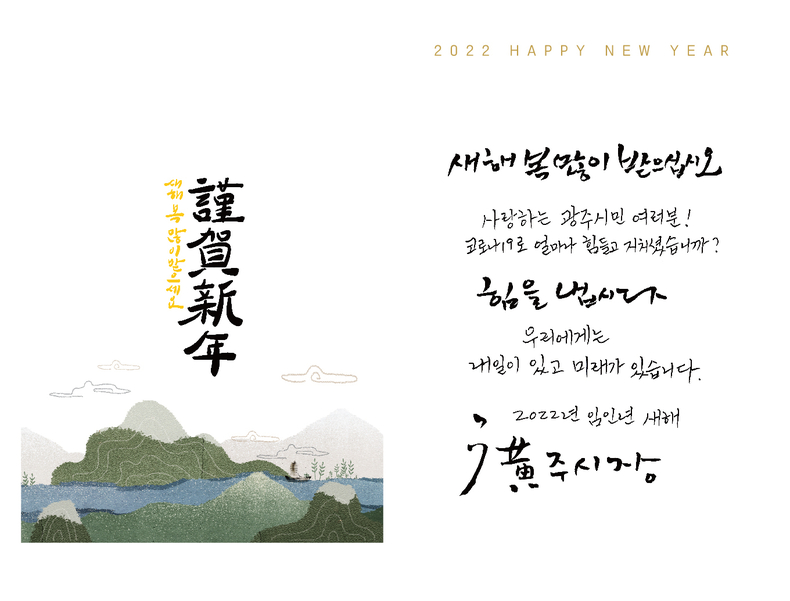 謹賀新年
새해 복 많이 받으세요
2022 HAPPY NEW YEAR
새해 복 많이 받으십시오
사랑하는 광주시민 여러분!
코로나19로 얼마나 힘들고 지치셨습니까?
힘을 냅시다
우리에게는
내일이 있고 미래가 있습니다.
2022년 임인년 새해
黃주시장